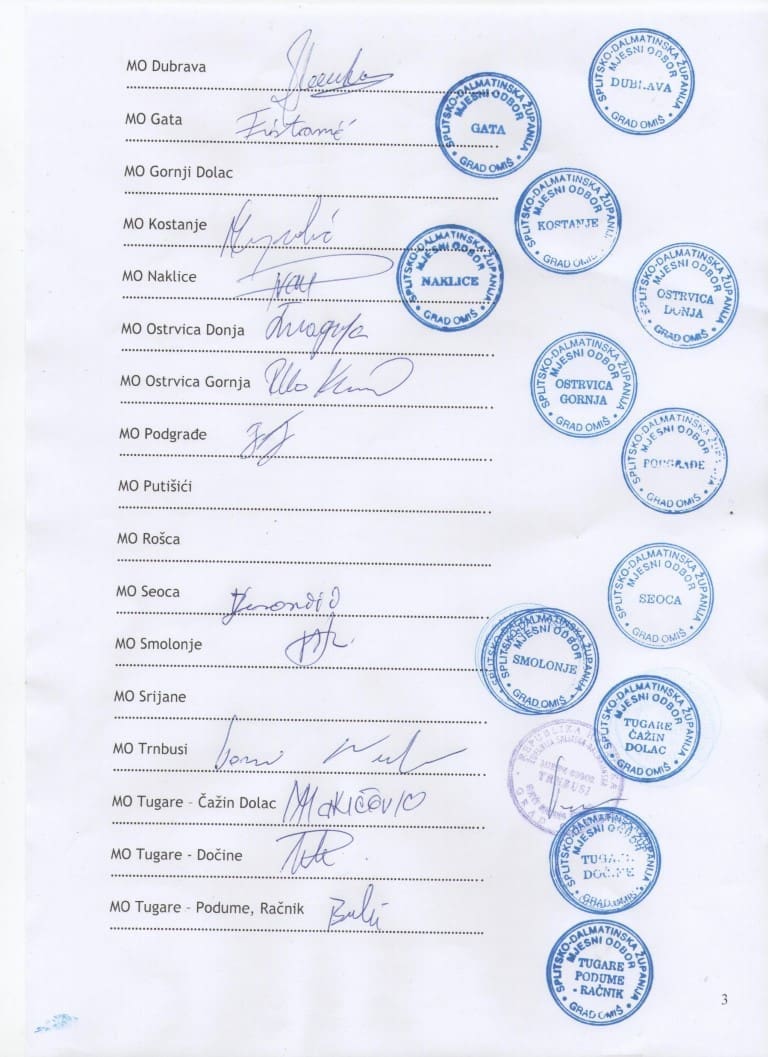 MO Dubrava
SPLITSKO-DALMATINSKA ŽUPANIJA
MJESNI ODBOR
DUBRAVA
GRAD OMIŠ
MO Gata
SPLITSKO-DALMATINSKA ŽUPANIJA
MJESNI ODBOR
GATA
GRAD OMIŠ
MO Gornji Dolac
MO Kostanje
SPLITSKO-DALMATINSKA ŽUPANIJA
MJESNI ODBOR
KOSTANJE
GRAD OMIŠ
MO Naklice
SPLITSKO-DALMATINSKA ŽUPANIJA
MJESNI ODBOR
NAKLICE
GRAD OMIŠ
MO Ostrvica Donja
SPLITSKO-DALMATINSKA ŽUPANIJA
MJESNI ODBOR
OSTRVICA
DONJA
GRAD OMIŠ
MO Ostrvica Gornja
SPLITSKO-DALMATINSKA ŽUPANIJA
MJESNI ODBOR
OSTRVICA
GORNJA
GRAD OMIŠ
MO Podgrađe
SPLITSKO-DALMATINSKA ŽUPANIJA
MJESNI ODBOR
PODGRAĐE
GRAD OMIŠ
MO Putišići
MO Rošca
MO Seoca
SPLITSKO-DALMATINSKA ŽUPANIJA
MJESNI ODBOR
SEOCA
GRAD OMIŠ
MO Smolonje
SPLITSKO-DALMATINSKA ŽUPANIJA
MJESNI ODBOR
SMOLONJE
GRAD OMIŠ
MO Srijane
MO Trnbusi
REPUBLIKA
TRNBUSI
MO Tugare - Čažin Dolac
SPLITSKO-DALMATINSKA ŽUPANIJA
MJESNI ODBOR
TUGARE
ČAŽIN
DOLAC
GRAD OMIŠ
MO Tugare - Dočine
SPLITSKO-DALMATINSKA ŽUPANIJA
MJESNI ODBOR
TUGARE
DOČINE
GRAD OMIŠ
MO Tugare - Podume, Račnik
SPLITSKO-DALMATINSKA ŽUPANIJA
MJESNI ODBOR
TUGARE
PODUME
- RAČNIK
GRAD OMIŠ
3